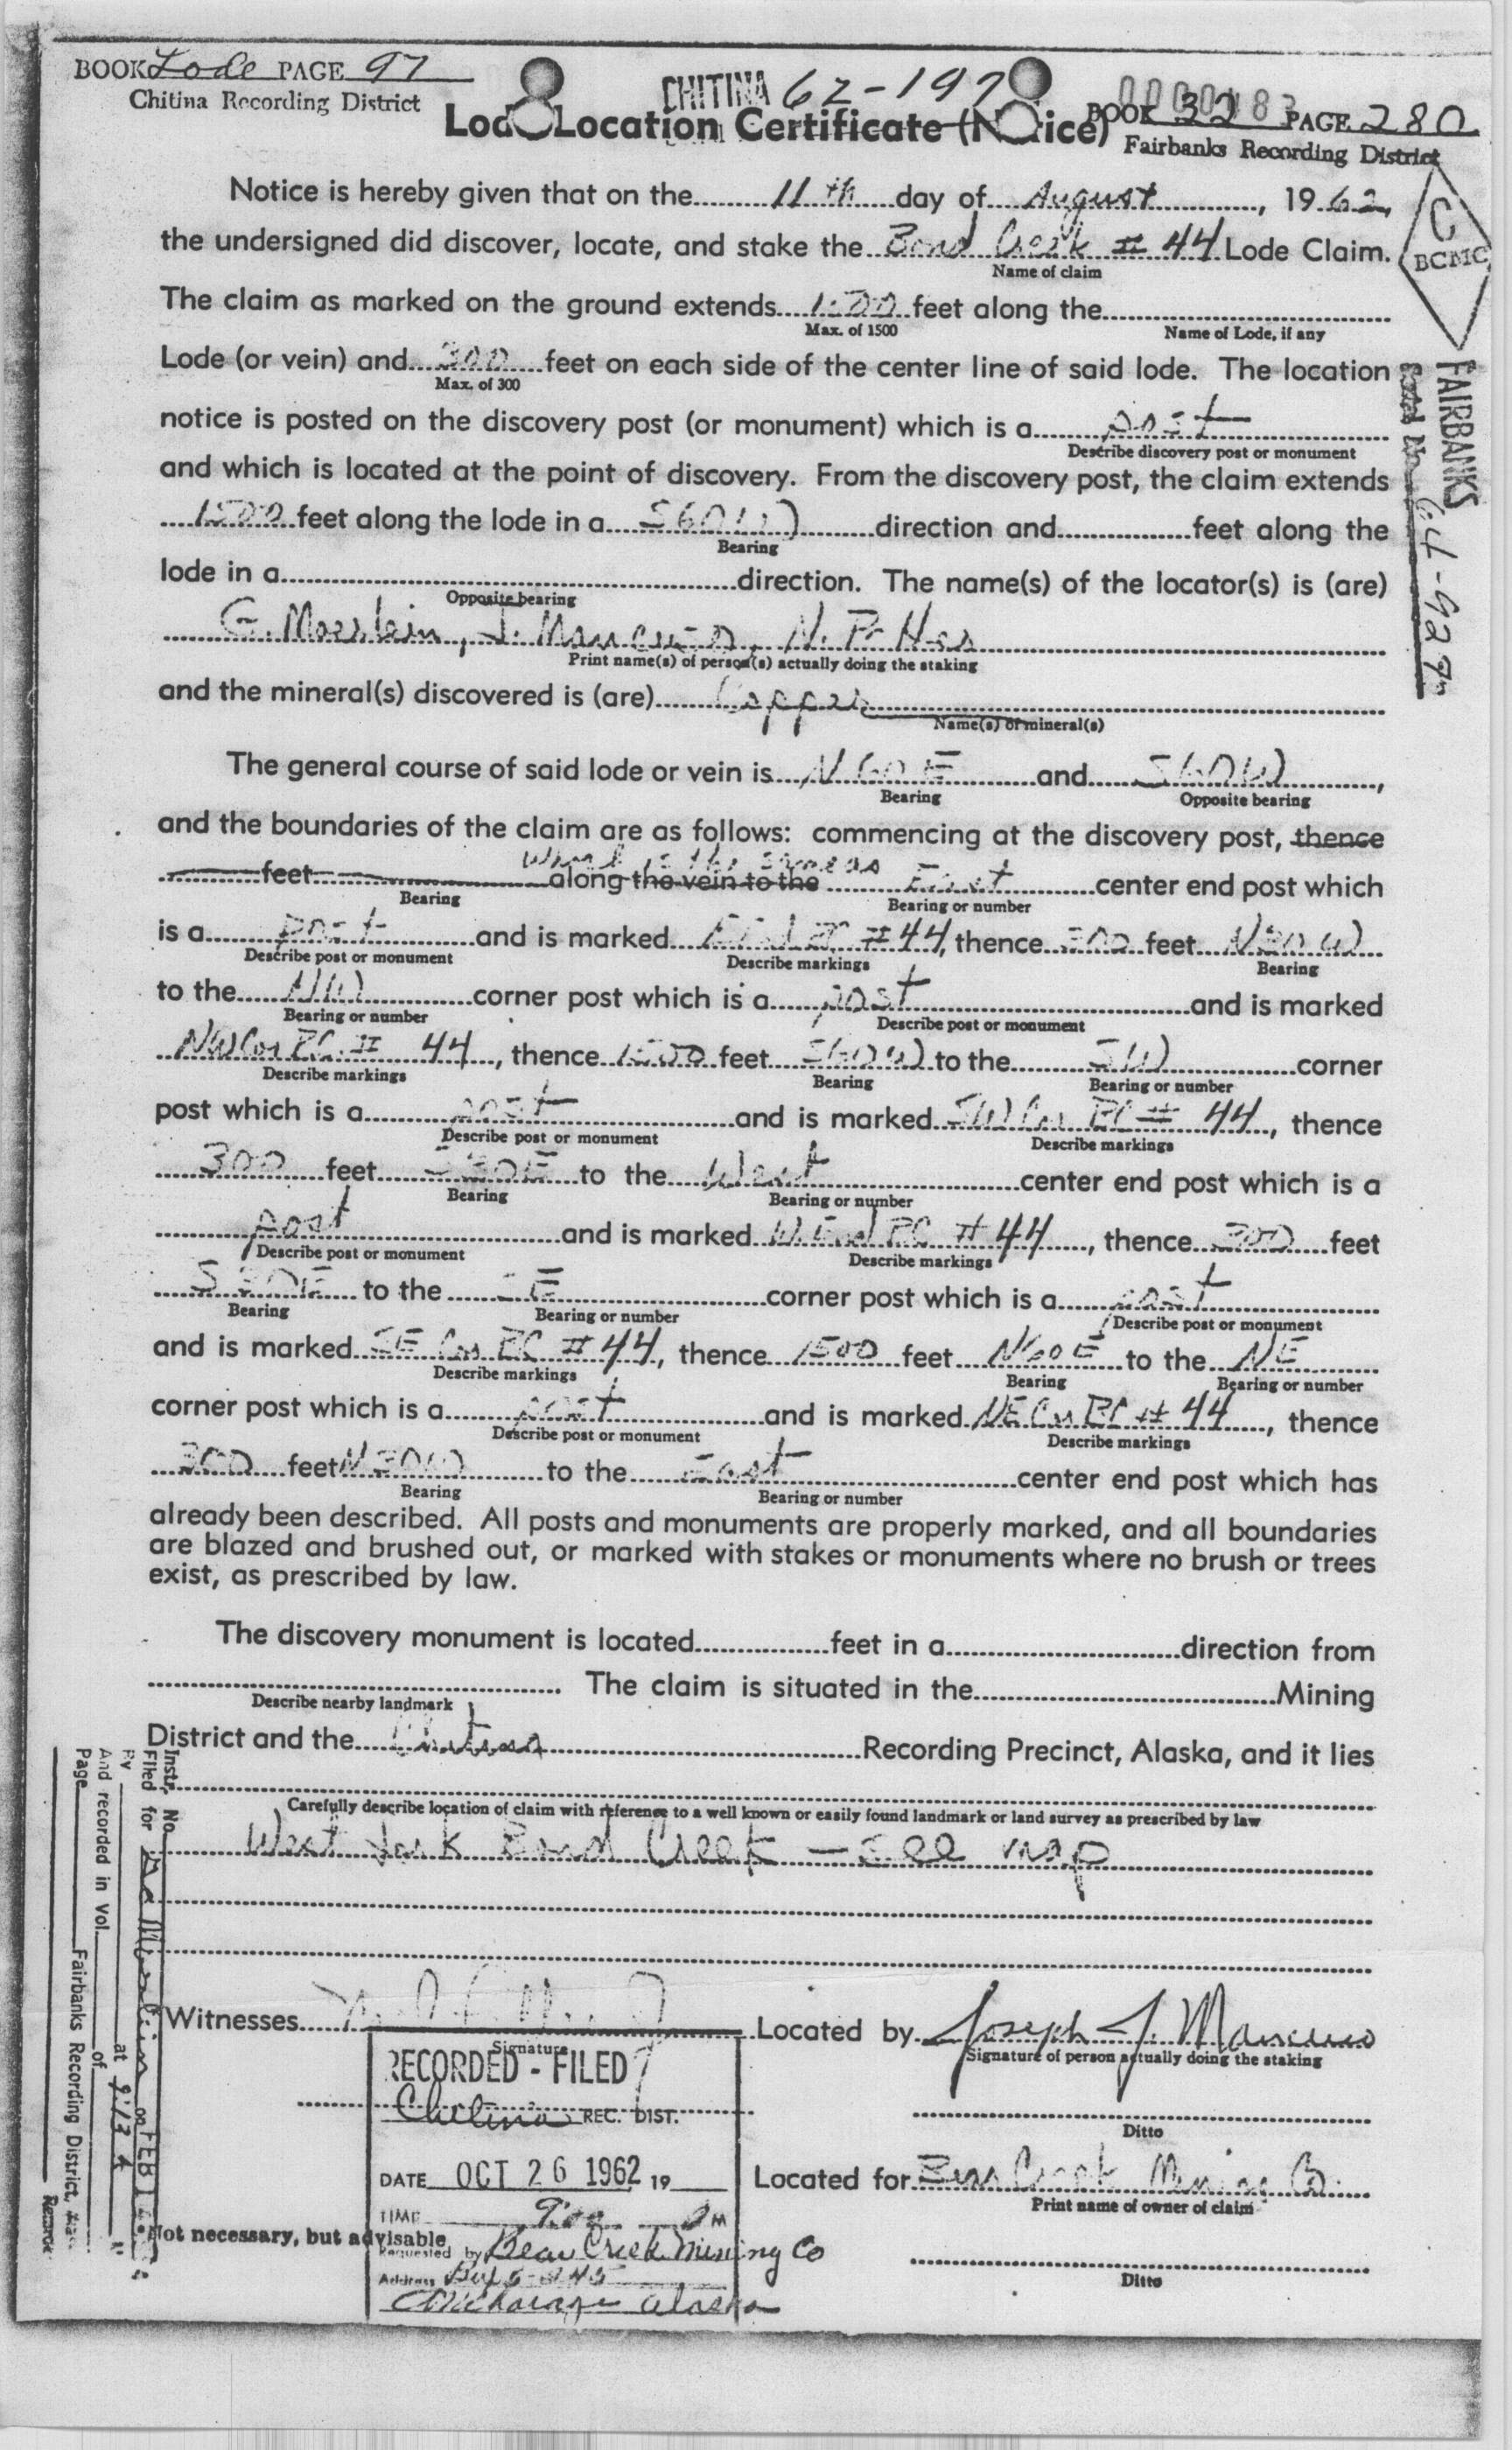 BOOK Lode PAGE 97
Chitina Recording District
CHITINA 62-197
BOOK 32 PAGE 280
Fairbanks Recording District
Location Certificate
Notice is hereby given that on the 11th day of August, 1962,
the undersigned did discover, locate, and stake the Bond Creek # 44 Lode Claim.
Name of claim
C
BCMC
The claim as marked on the ground extends 1500 feet along the
Max. of 1500 Name of Lode, if any
Lode (or vein) and 300 feet on each side of the center line of said lode. The location
Max. of 300
FAIRBANKS
notice is posted on the discovery post (or monument) which is a post
Describe discovery post or monument
and which is located at the point of discovery. From the discovery post, the claim extends
1500 feet along the lode in a S60W direction and feet along the
Bearing
lode in a direction. The name(s) of the locator(s) is (are)
Opposite bearing
G. Moerlein, J. Mancuso, N.
Print name(s) of person(s) actually doing the staking
and the mineral(s) discovered is (are) Copper
Name(s) of mineral(s)
The general course of said lode or vein is N60E and S60W,
Bearing Opposite bearing
and the boundaries of the claim are as follows: commencing at the discovery post, thence
which is the same as
feet along the vein to the East center end post which
Bearing Bearing or number
is a post and is marked # 44, thence 300 feet N30W
Describe post or monument Describe markings Bearing
to the NW corner post which is a post and is marked
Bearing or number Describe post or monument
NW Cor BC # 44, thence 1500 feet S60W to the SW corner
Describe markings Bearing Bearing or number
post which is a post and is marked SW Cor BC # 44, thence
Describe post or monument Describe markings
300 feet S30E to the West center end post which is a
Bearing Bearing or number
post and is marked W. End BC # 44, thence 300 feet
Describe post or monument Describe markings
S30E to the SE corner post which is a post
Bearing Bearing or number Describe post or monument
and is marked SE Cor BC # 44, thence 1500 feet N60E to the NE
Describe markings Bearing Bearing or number
corner post which is a post and is marked NE Cor BC # 44, thence
Describe post or monument Describe markings
300 feet N30W to the East center end post which has
Bearing Bearing or number
already been described. All posts and monuments are properly marked, and all boundaries
are blazed and brushed out, or marked with stakes or monuments where no brush or trees
exist, as prescribed by law.
The discovery monument is located feet in a direction from
The claim is situated in the Mining
Describe nearby landmark
District and the Chitina Recording Precinct, Alaska, and it lies
Carefully describe location of claim with reference to a well known or easily found landmark or land survey as prescribed by law
West fork Bond Creek - see map
Instr. No.
Filed for
By at
And recorded in Vol. of
Page Fairbanks Recording District,
Witnesses
Signature
Located by Joseph J. Mancuso
Signature of person actually doing the staking
RECORDED - FILED
Chitina REC. DIST.
Ditto
DATE OCT 26 1962 19
Located for Bear Creek Mining Co.
Print name of owner of claim
TIME 9:00 M
Not necessary, but advisable
Requested by Bear Creek Mining Co
Ditto
Address
Anchorage Alaska